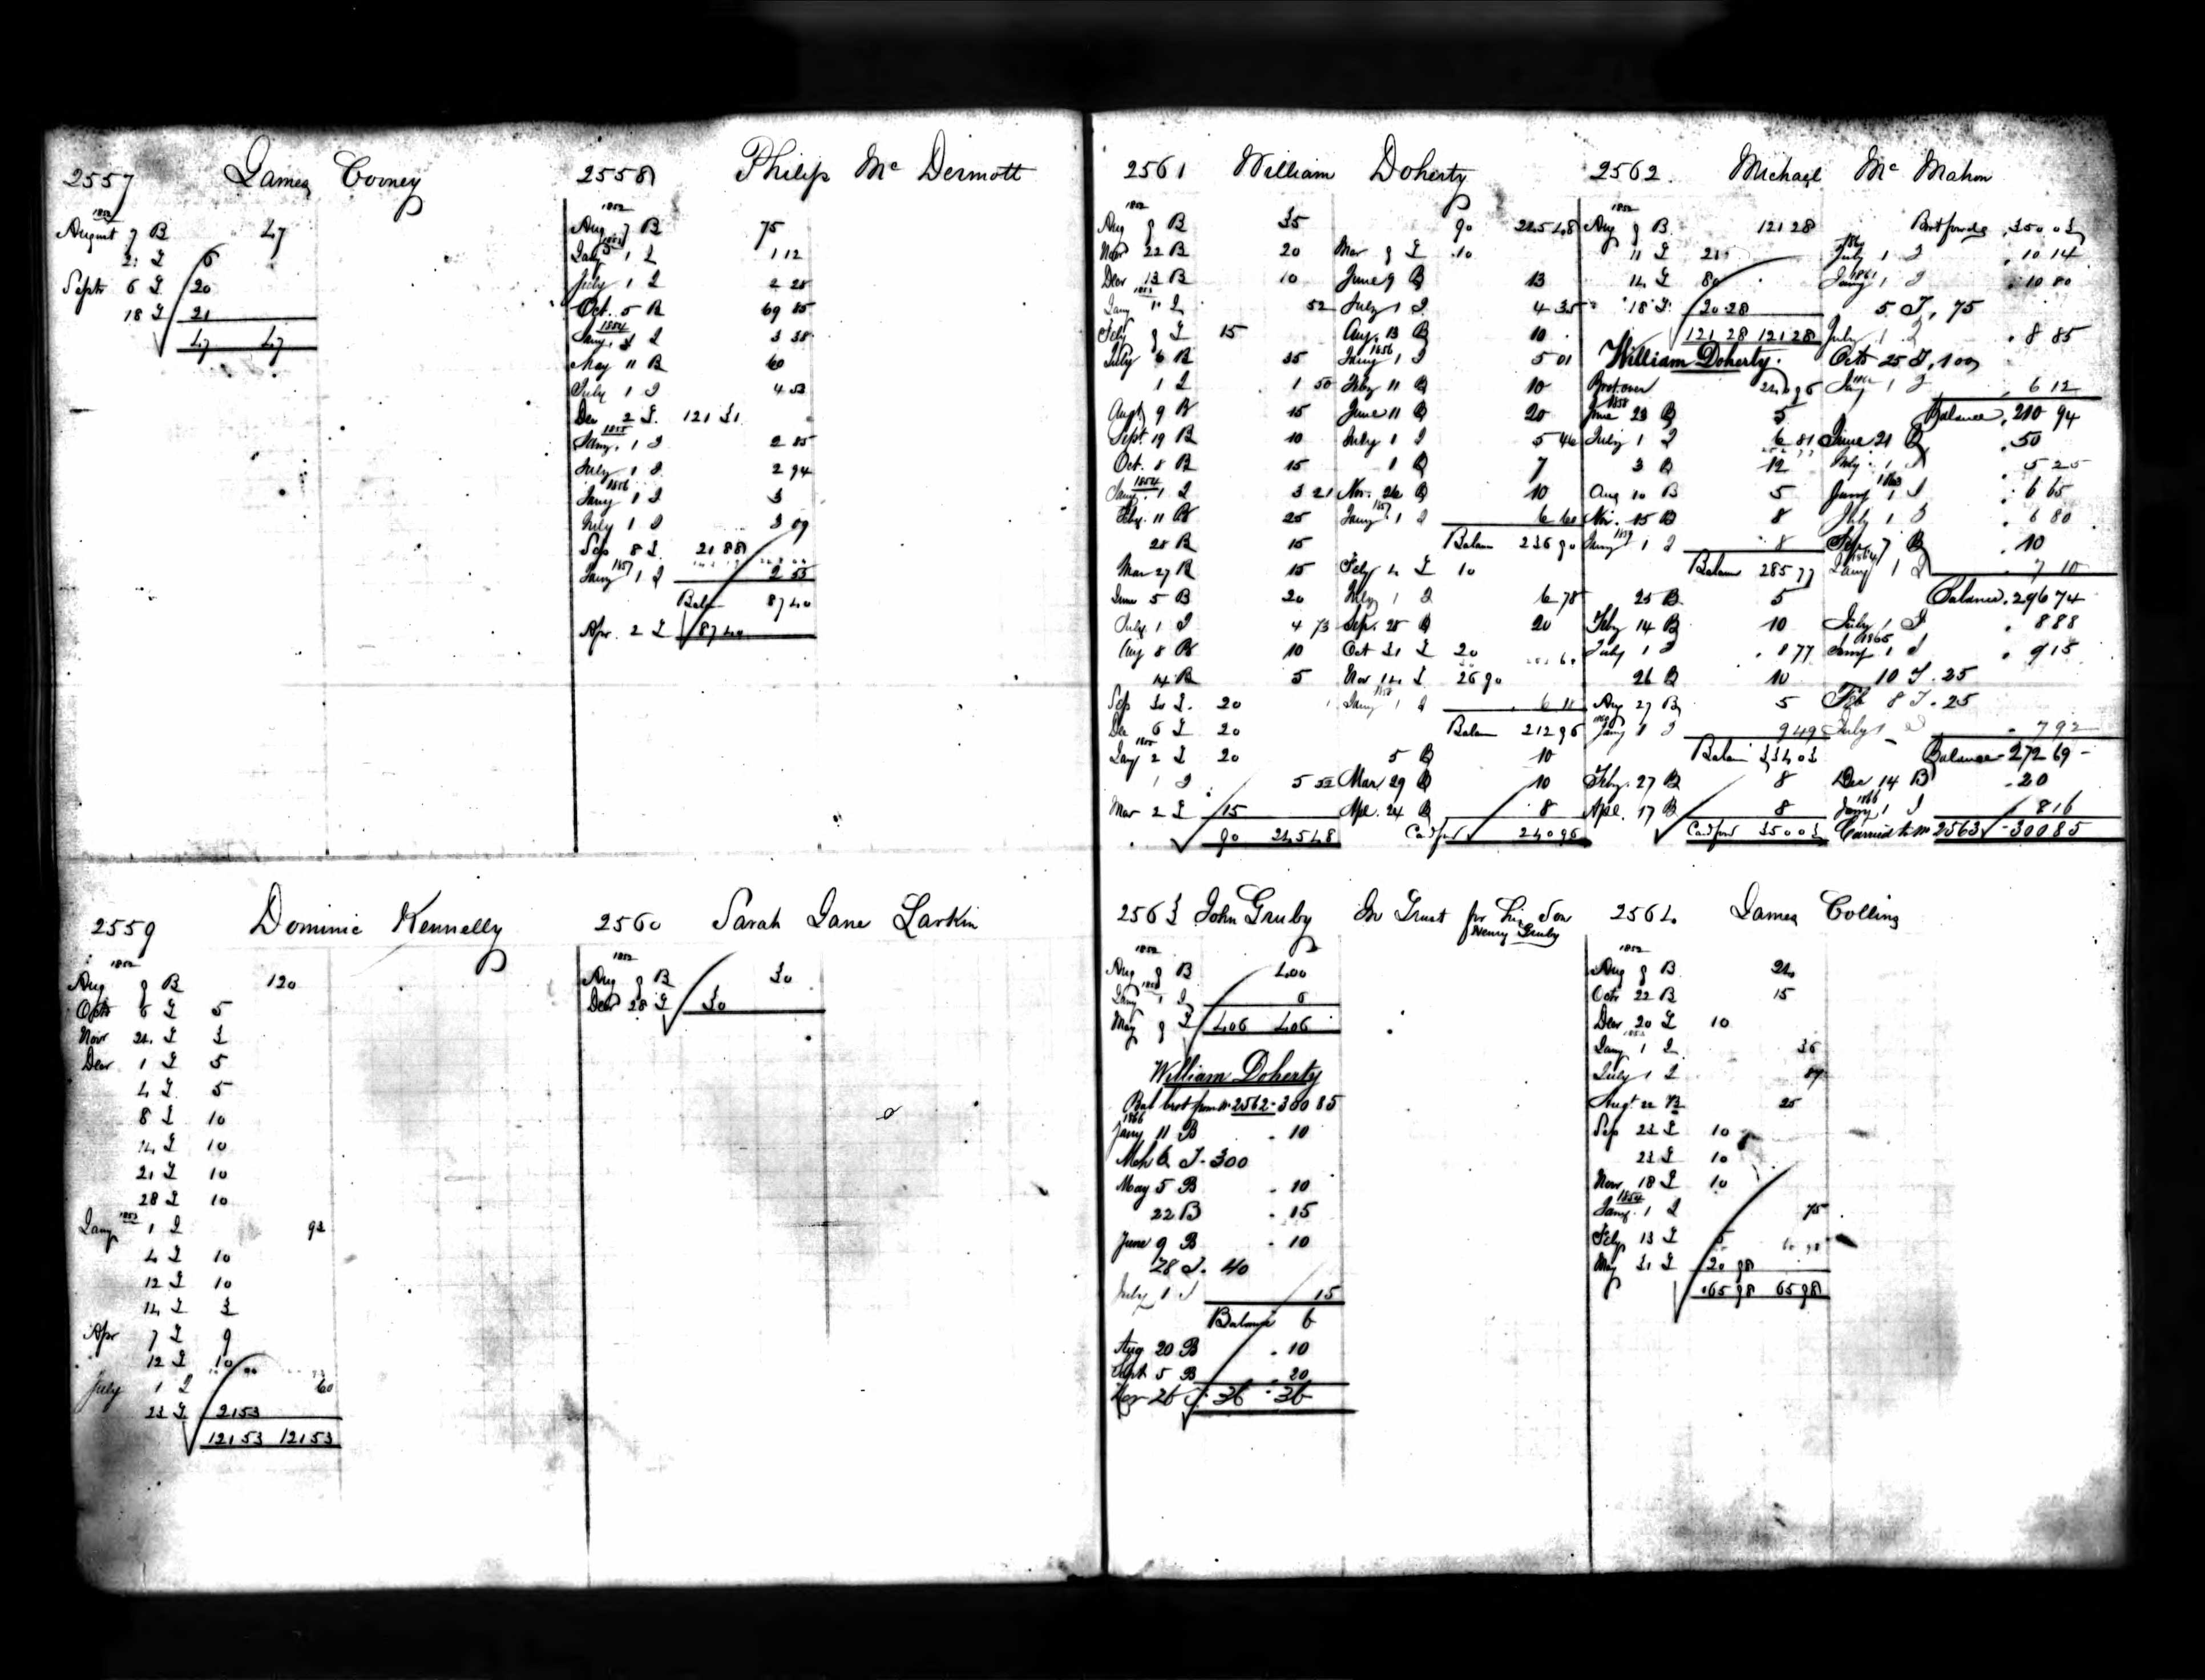 2557 James Cooney
1852
August 7 B 47
21 I 6
Septr 6 I 20
18 I 21
47 47
2558 Philip Mc Dermott
1852
Aug 7 B 75
1853
Jany 1 I 1 12
July 1 I 2 28
Oct. 5 B 69 85
1854
Jany. 1 I 3 38
May 11 B 60
July 1 I 4 53
Der 2 I. 121 31
1855
Jany. 1 I 2 85
July 1 I 2 94
1856
Jany 1 I 3
July 1 I 3 09
Sep 8 I. 21 88
1857
Jany 1 I 2 55
Balan 87 40
Apr. 2 I 87 40
2559 Dominic Kennelly
1852
Aug 9 B 120
Octr 6 I 5
Novr 24 I 3
Decr 1 I 5
4 I 5
8 I 10
14 I 10
21 I 10
28 I 10
Jany 1853 1 I 93
4 I 10
12 I 10
14 I 3
Apr 7 I 9
12 I 10
July 1 I 60
23 I 21 53
121 53 121 53
2560 Sarah Jane Larkin
1852
Aug 9 B 30
Decr 28 I 30
2561 William Doherty
1852
Aug 9 B 35
Novr 22 B 20
Decr 13 B 10
1853
Jany 1 I 52
Feby 9 I 15
July 6 B 35
1 I 1 50
Augt 9 B 15
Sept. 19 B 10
Oct. 8 B 15
1854
Jany. 1 I 3 21
Feby. 11 B 25
28 B 15
Mar 27 B 15
June 5 B 20
July. 1 I 4 73
Aug 8 B 10
14 B 5
Sep 30 I. 20
Der 6 I 20
1855
Jany 2 I 20
1 I 5 52
Mar 2 I 15
90 245 48
90 245 48
Mar 9 I 10
June 9 B 13
July 1 I 4 35
Aug. 13 B 10
1856
Jany 1 I 5 01
Feby 11 B 10
June 11 B 20
July 1 I 5 46
1 B 7
Nov. 26 B 10
1857
Jany 1 I 6 60
Balan 236 90
Feby 4 I 10
July 1 I 6 78
Sep. 28 B 20
Oct 31 I 20
Nov 14 I 26 90
1858
Jany 1 I 6 18
Balan 212 96
5 B 10
Mar 29 B 10
Apl. 24 B 8
Cad ford 240 96
2562. Michael Mc Mahon
1852
Aug 9 B. 121 28
11 I 21
14 I 80
18 I 20 28
121 28 121 28
William Doherty.
Brot over 240 96
1858
June 23 B 5
July 1 I 6 81
3 B 12
Aug 10 B 5
Nov. 15 B 8
1859
Jany 1 I 8
Balan 285 77
25 B 5
Feby 14 B 10
July 1 I 8 77
26 B 10
Aug 27 B 5
1860
Jany 1 I 9 49
Balan 334 03
Feby. 27 B 8
Apl. 17 B 8
Cad ford 350 03
Brot forwd 350 03
1860
July 1 I 10 14
1861
Jany 1 I 10 80
5 I, 75
July 1 I 8 85
Octr 25 I, 100
1862
Jany 1 I 6 12
Balance. 210 94
June 21 B .50
July 1 I 5 25
1863
Jany 1 I 6 65
July 1 I 6 80
Sep 7 B .10
1864
Jany 1 I 7 10
Balance. 296 74
July 1 I 8 88
1865
Jany 1 I 9 15
10 I. 25
Feb 8 I. 25
July 1 I 7 92
Balance - 272 69 -
Dec 14 B .20
1866
Jany 1 I 8 16
Carried to No 2563 - 300 85
2563 John Gruby In Trust for his Son
Henry Gruby
1852
Aug 9 B 400
1853
Jany 1 I 6
May 9 I 406 406
William Doherty
Bal brot from No 2562 - 300 85
1866
Jany 11 B . 10
Mch 6 I. 300
May 5 B . 10
22 B . 15
June 9 B . 10
28 I. 40
July 1 I 15
Balance 6
Aug 20 B . 10
Sept 5 B . 20
Nov 26 I. 36 . 36
2564 James Collins
1852
Aug 9 B 24
Octr 22 B 15
Decr 20 I 10
1853
Jany 1 I 36
July 1 I 87
Augt 22 B 25
Sep 23 I 10
23 I 10
Novr 18 I 10
1854
Jany. 1 I 75
Feby 13 I 5
May 31 I 20 98
65 98 65 98